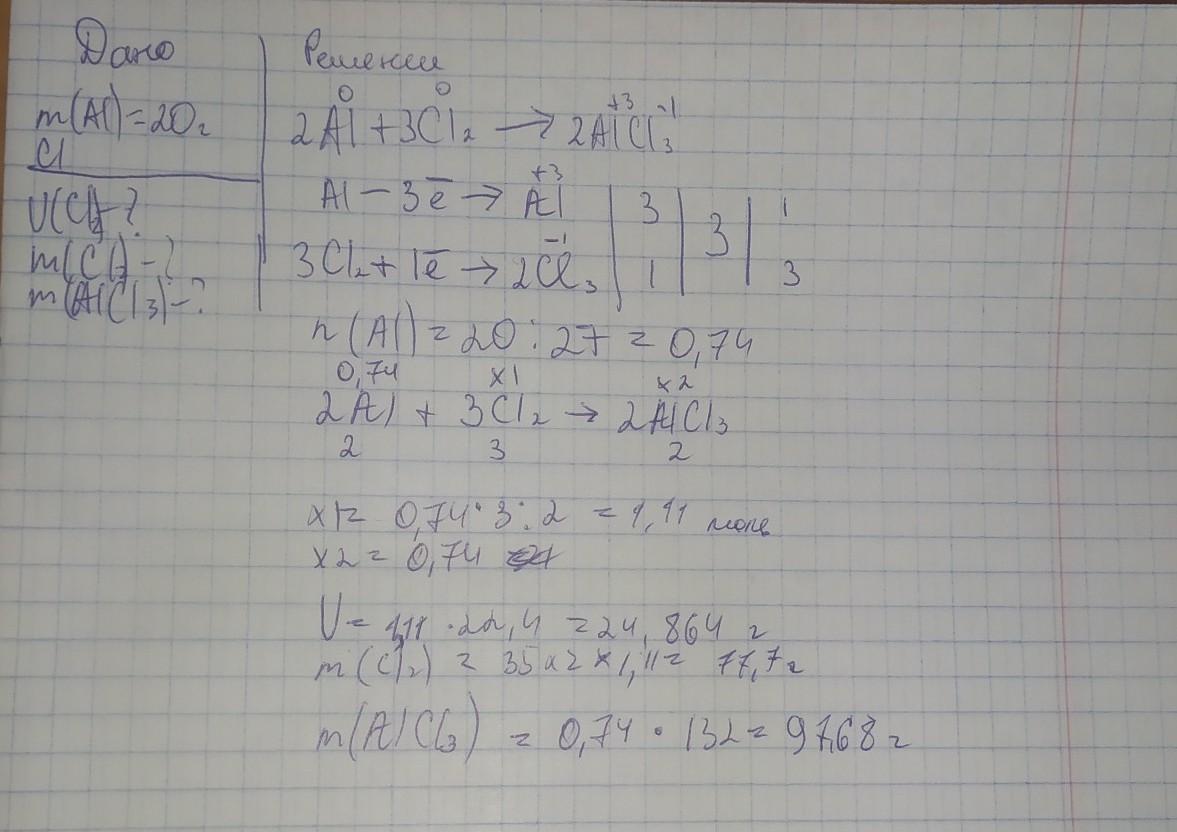 Дано
m(Al)=20г
Cl
V(Cl₂)-?
m(Cl₂)-?
m(AlCl₃)-?
Решении
0 0 +3 -1
2Al + 3Cl₂ → 2AlCl₃
+3
Al - 3e̅ → Al | 3 | 3 | 1
-1
3Cl₂ + 1e̅ → 2Cl₃ | 1 | 3
n(Al) = 20 : 27 = 0,74
0,74 x1 x2
2Al + 3Cl₂ → 2AlCl₃
2 3 2
x1 = 0,74 · 3 : 2 = 1,11 моль
x2 = 0,74
V = 1,11 · 22,4 = 24,864 г
m(Cl₂) = 35 x 2 x 1,11 = 77,7г
m(AlCl₃) = 0,74 · 132 = 97,68 г